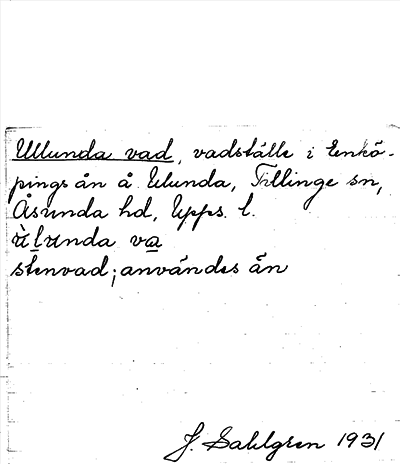 Ullunda vad, vadställe i Enkö-
pings ån å Ulunda, Tillinge sn,
Åsunda hd, Upps. l.
ùlunda va
stenvad; användes än
J. Sahlgren 1931